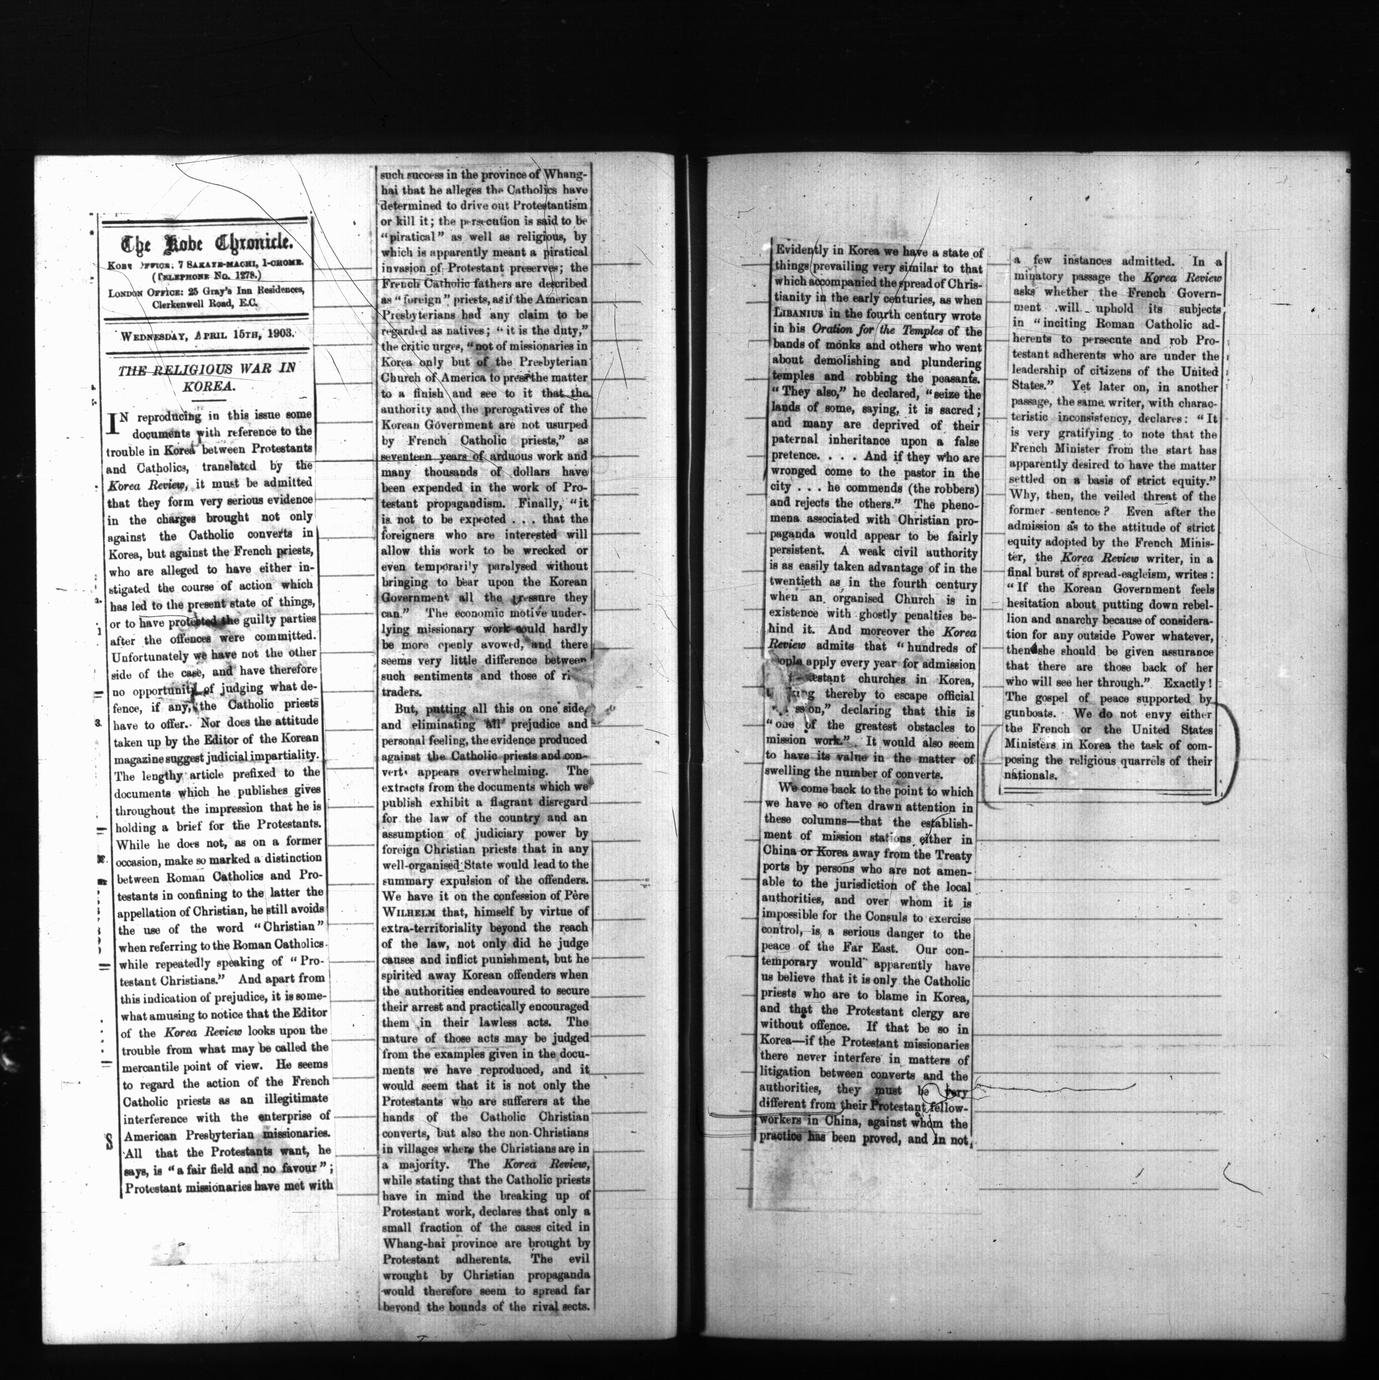 The Kobe Chronicle.
KOBE OFFICE: 7 SAKAYE-MACHI, 1-CHOME.
(TELEPHONE No. 1278.)
LONDON OFFICE: 25 Gray's Inn Residences,
Clerkenwell Road, E.C.
WEDNESDAY, APRIL 15TH, 1903.
THE RELIGIOUS WAR IN
KOREA.
IN reproducing in this issue some
documents with reference to the
trouble in Korea between Protestants
and Catholics, translated by the
Korea Review, it must be admitted
that they form very serious evidence
in the charges brought not only
against the Catholic converts in
Korea, but against the French priests,
who are alleged to have either in-
stigated the course of action which
has led to the present state of things,
or to have protected the guilty parties
after the offences were committed.
Unfortunately we have not the other
side of the case, and have therefore
no opportunity of judging what de-
fence, if any, the Catholic priests
have to offer. Nor does the attitude
taken up by the Editor of the Korean
magazine suggest judicial impartiality.
The lengthy article prefixed to the
documents which he publishes gives
throughout the impression that he is
holding a brief for the Protestants.
While he does not, as on a former
occasion, make so marked a distinction
between Roman Catholics and Pro-
testants in confining to the latter the
appellation of Christian, he still avoids
the use of the word "Christian"
when referring to the Roman Catholics
while repeatedly speaking of "Pro-
testant Christians." And apart from
this indication of prejudice, it is some-
what amusing to notice that the Editor
of the Korea Review looks upon the
trouble from what may be called the
mercantile point of view. He seems
to regard the action of the French
Catholic priests as an illegitimate
interference with the enterprise of
American Presbyterian missionaries.
All that the Protestants want, he
says, is "a fair field and no favour";
Protestant missionaries have met with
such success in the province of Whang-
hai that he alleges the Catholics have
determined to drive out Protestantism
or kill it; the persecution is said to be
"piratical" as well as religious, by
which is apparently meant a piratical
invasion of Protestant preserves; the
French Catholic fathers are described
as "foreign" priests, as if the American
Presbyterians had any claim to be
regarded as natives; "it is the duty,"
the critic urges, "not of missionaries in
Korea only but of the Presbyterian
Church of America to press the matter
to a finish and see to it that the
authority and the prerogatives of the
Korean Government are not usurped
by French Catholic priests," as
seventeen years of arduous work and
many thousands of dollars have
been expended in the work of Pro-
testant propagandism. Finally, "it
is not to be expected . . . that the
foreigners who are interested will
allow this work to be wrecked or
even temporarily paralysed without
bringing to bear upon the Korean
Government all the pressure they
can." The economic motive under-
lying missionary work could hardly
be more openly avowed, and there
seems very little difference between
such sentiments and those of
traders.
But, putting all this on one side,
and eliminating all prejudice and
personal feeling, the evidence produced
against the Catholic priests and con-
verts appears overwhelming. The
extracts from the documents which we
publish exhibit a flagrant disregard
for the law of the country and an
assumption of judiciary power by
foreign Christian priests that in any
well-organised State would lead to the
summary expulsion of the offenders.
We have it on the confession of Père
WILHELM that, himself by virtue of
extra-territoriality beyond the reach
of the law, not only did he judge
causes and inflict punishment, but he
spirited away Korean offenders when
the authorities endeavoured to secure
their arrest and practically encouraged
them in their lawless acts. The
nature of those acts may be judged
from the examples given in the docu-
ments we have reproduced, and it
would seem that it is not only the
Protestants who are sufferers at the
hands of the Catholic Christian
converts, but also the non-Christians
in villages where the Christians are in
a majority. The Korea Review,
while stating that the Catholic priests
have in mind the breaking up of
Protestant work, declares that only a
small fraction of the cases cited in
Whang-hai province are brought by
Protestant adherents. The evil
wrought by Christian propaganda
would therefore seem to spread far
beyond the bounds of the rival sects.
Evidently in Korea we have a state of
things prevailing very similar to that
which accompanied the spread of Chris-
tianity in the early centuries, as when
LIBANIUS in the fourth century wrote
in his Oration for the Temples of the
bands of monks and others who went
about demolishing and plundering
temples and robbing the peasants.
"They also," he declared, "seize the
lands of some, saying, it is sacred;
and many are deprived of their
paternal inheritance upon a false
pretence. . . . And if they who are
wronged come to the pastor in the
city . . . he commends (the robbers)
and rejects the others." The pheno-
mena associated with Christian pro-
paganda would appear to be fairly
persistent. A weak civil authority
is as easily taken advantage of in the
twentieth as in the fourth century
when an organised Church is in
existence with ghostly penalties be-
hind it. And moreover the Korea
Review admits that "hundreds of
people apply every year for admission
churches in Korea,
thereby to escape official
declaring that this is
"one of the greatest obstacles to
mission work." It would also seem
to have its value in the matter of
swelling the number of converts.
We come back to the point to which
we have so often drawn attention in
these columns—that the establish-
ment of mission stations either in
China or Korea away from the Treaty
ports by persons who are not amen-
able to the jurisdiction of the local
authorities, and over whom it is
impossible for the Consuls to exercise
control, is a serious danger to the
peace of the Far East. Our con-
temporary would apparently have
us believe that it is only the Catholic
priests who are to blame in Korea,
and that the Protestant clergy are
without offence. If that be so in
Korea—if the Protestant missionaries
there never interfere in matters of
litigation between converts and the
authorities, they must be very
different from their Protestant fellow-
workers in China, against whom the
practice has been proved, and in not
a few instances admitted. In a
minatory passage the Korea Review
asks whether the French Govern-
ment will uphold its subjects
in "inciting Roman Catholic ad-
herents to persecute and rob Pro-
testant adherents who are under the
leadership of citizens of the United
States." Yet later on, in another
passage, the same writer, with charac-
teristic inconsistency, declares: "It
is very gratifying to note that the
French Minister from the start has
apparently desired to have the matter
settled on a basis of strict equity."
Why, then, the veiled threat of the
former sentence? Even after the
admission as to the attitude of strict
equity adopted by the French Minis-
ter, the Korea Review writer, in a
final burst of spread-eagleism, writes:
"If the Korean Government feels
hesitation about putting down rebel-
lion and anarchy because of considera-
tion for any outside Power whatever,
then she should be given assurance
that there are those back of her
who will see her through." Exactly!
The gospel of peace supported by
gunboats. We do not envy either
the French or the United States
Ministers in Korea the task of com-
posing the religious quarrels of their
nationals.